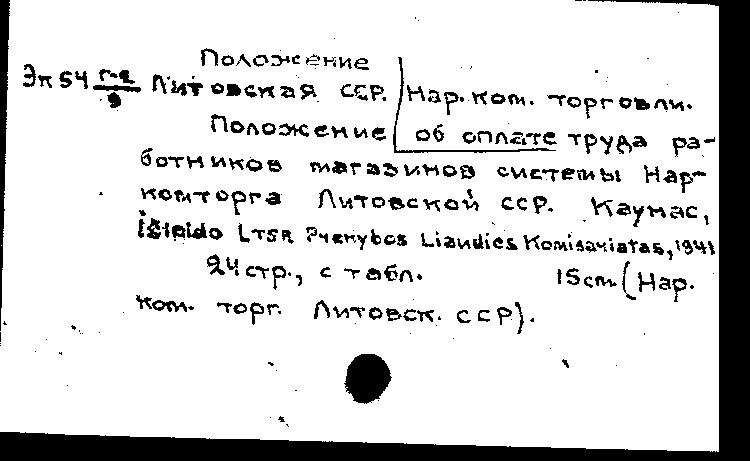 Положение
Эп54 г-2/9 Литовская ССР. Нар. ком. торговли.
Положение об оплате труда ра-
ботников магазинов системы Нар-
комторга Литовской ССР. Каунас,
išleido LTSR Prekybos Liaudies Komisariatas, 1941
24 стр., с табл. 15 cm. (Нар.
ком. торг. Литовск. ССР).